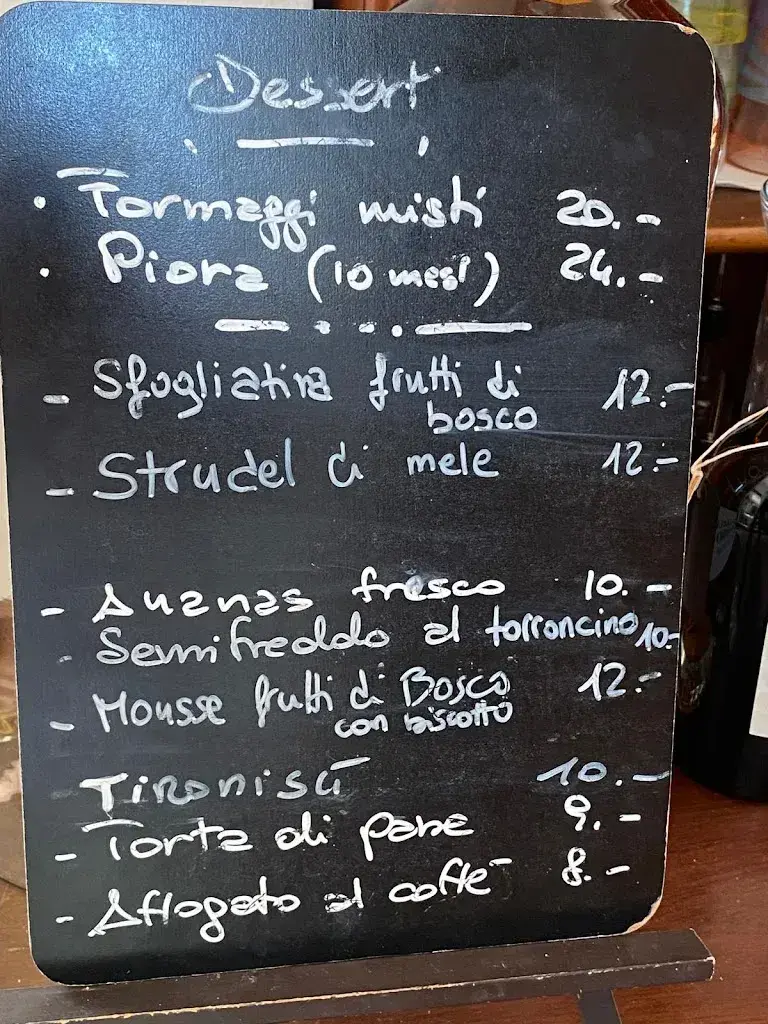 Dessert
• Formaggi misti 20.-
• Piora (10 mesi) 24.-
- Sfogliatina frutti di 12.-
bosco
- Strudel di mele 12.-
- Ananas fresco 10.-
- Semifreddo al torroncino 10.-
- Mousse frutti di Bosco 12.-
con biscotto
Tiramisù 10.-
- Torta di pane 9.-
- Affogato al caffè 8.-